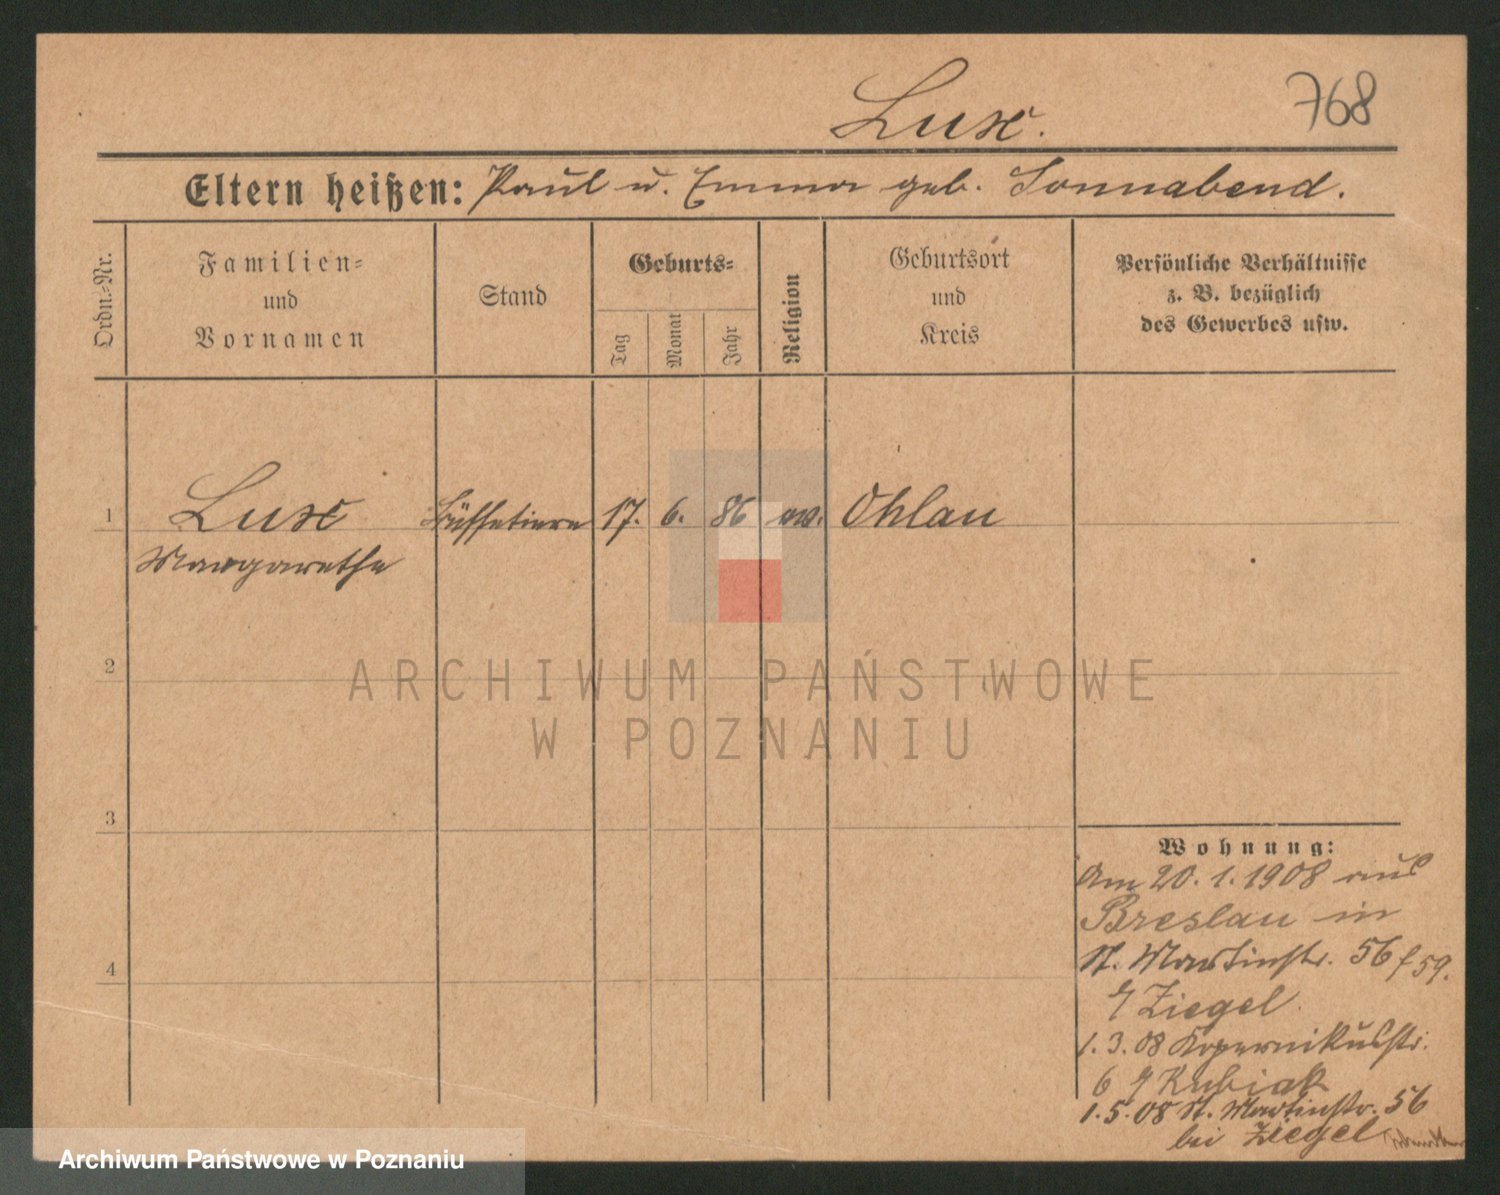 768
Lux.
Eltern heißen: Paul u. Emma geb. Sonnabend.
Ordn.-Nr.
Familien-
und
Vornamen
Stand
Geburts-
Tag
Monat
Jahr
Religion
Geburtsort
und
Kreis
Persönliche Verhältnisse
z. B. bezüglich
des Gewerbes usw.
1
Lux Büffetiere 17. 6. 86 ev. Ohlau
Margarethe
2
ARCHIWUM PAŃSTWOWE
W POZNANIU
3
4
Wohnung:
Am 20.1.1908 aus
Breslau in
St. Martinstr. 56 f 59.
Ziegel
1.3.08 Kopernikusstr.
6 Kubiak
1.5.08 St. Martinstr. 56
bei Ziegel
Archiwum Państwowe w Poznaniu